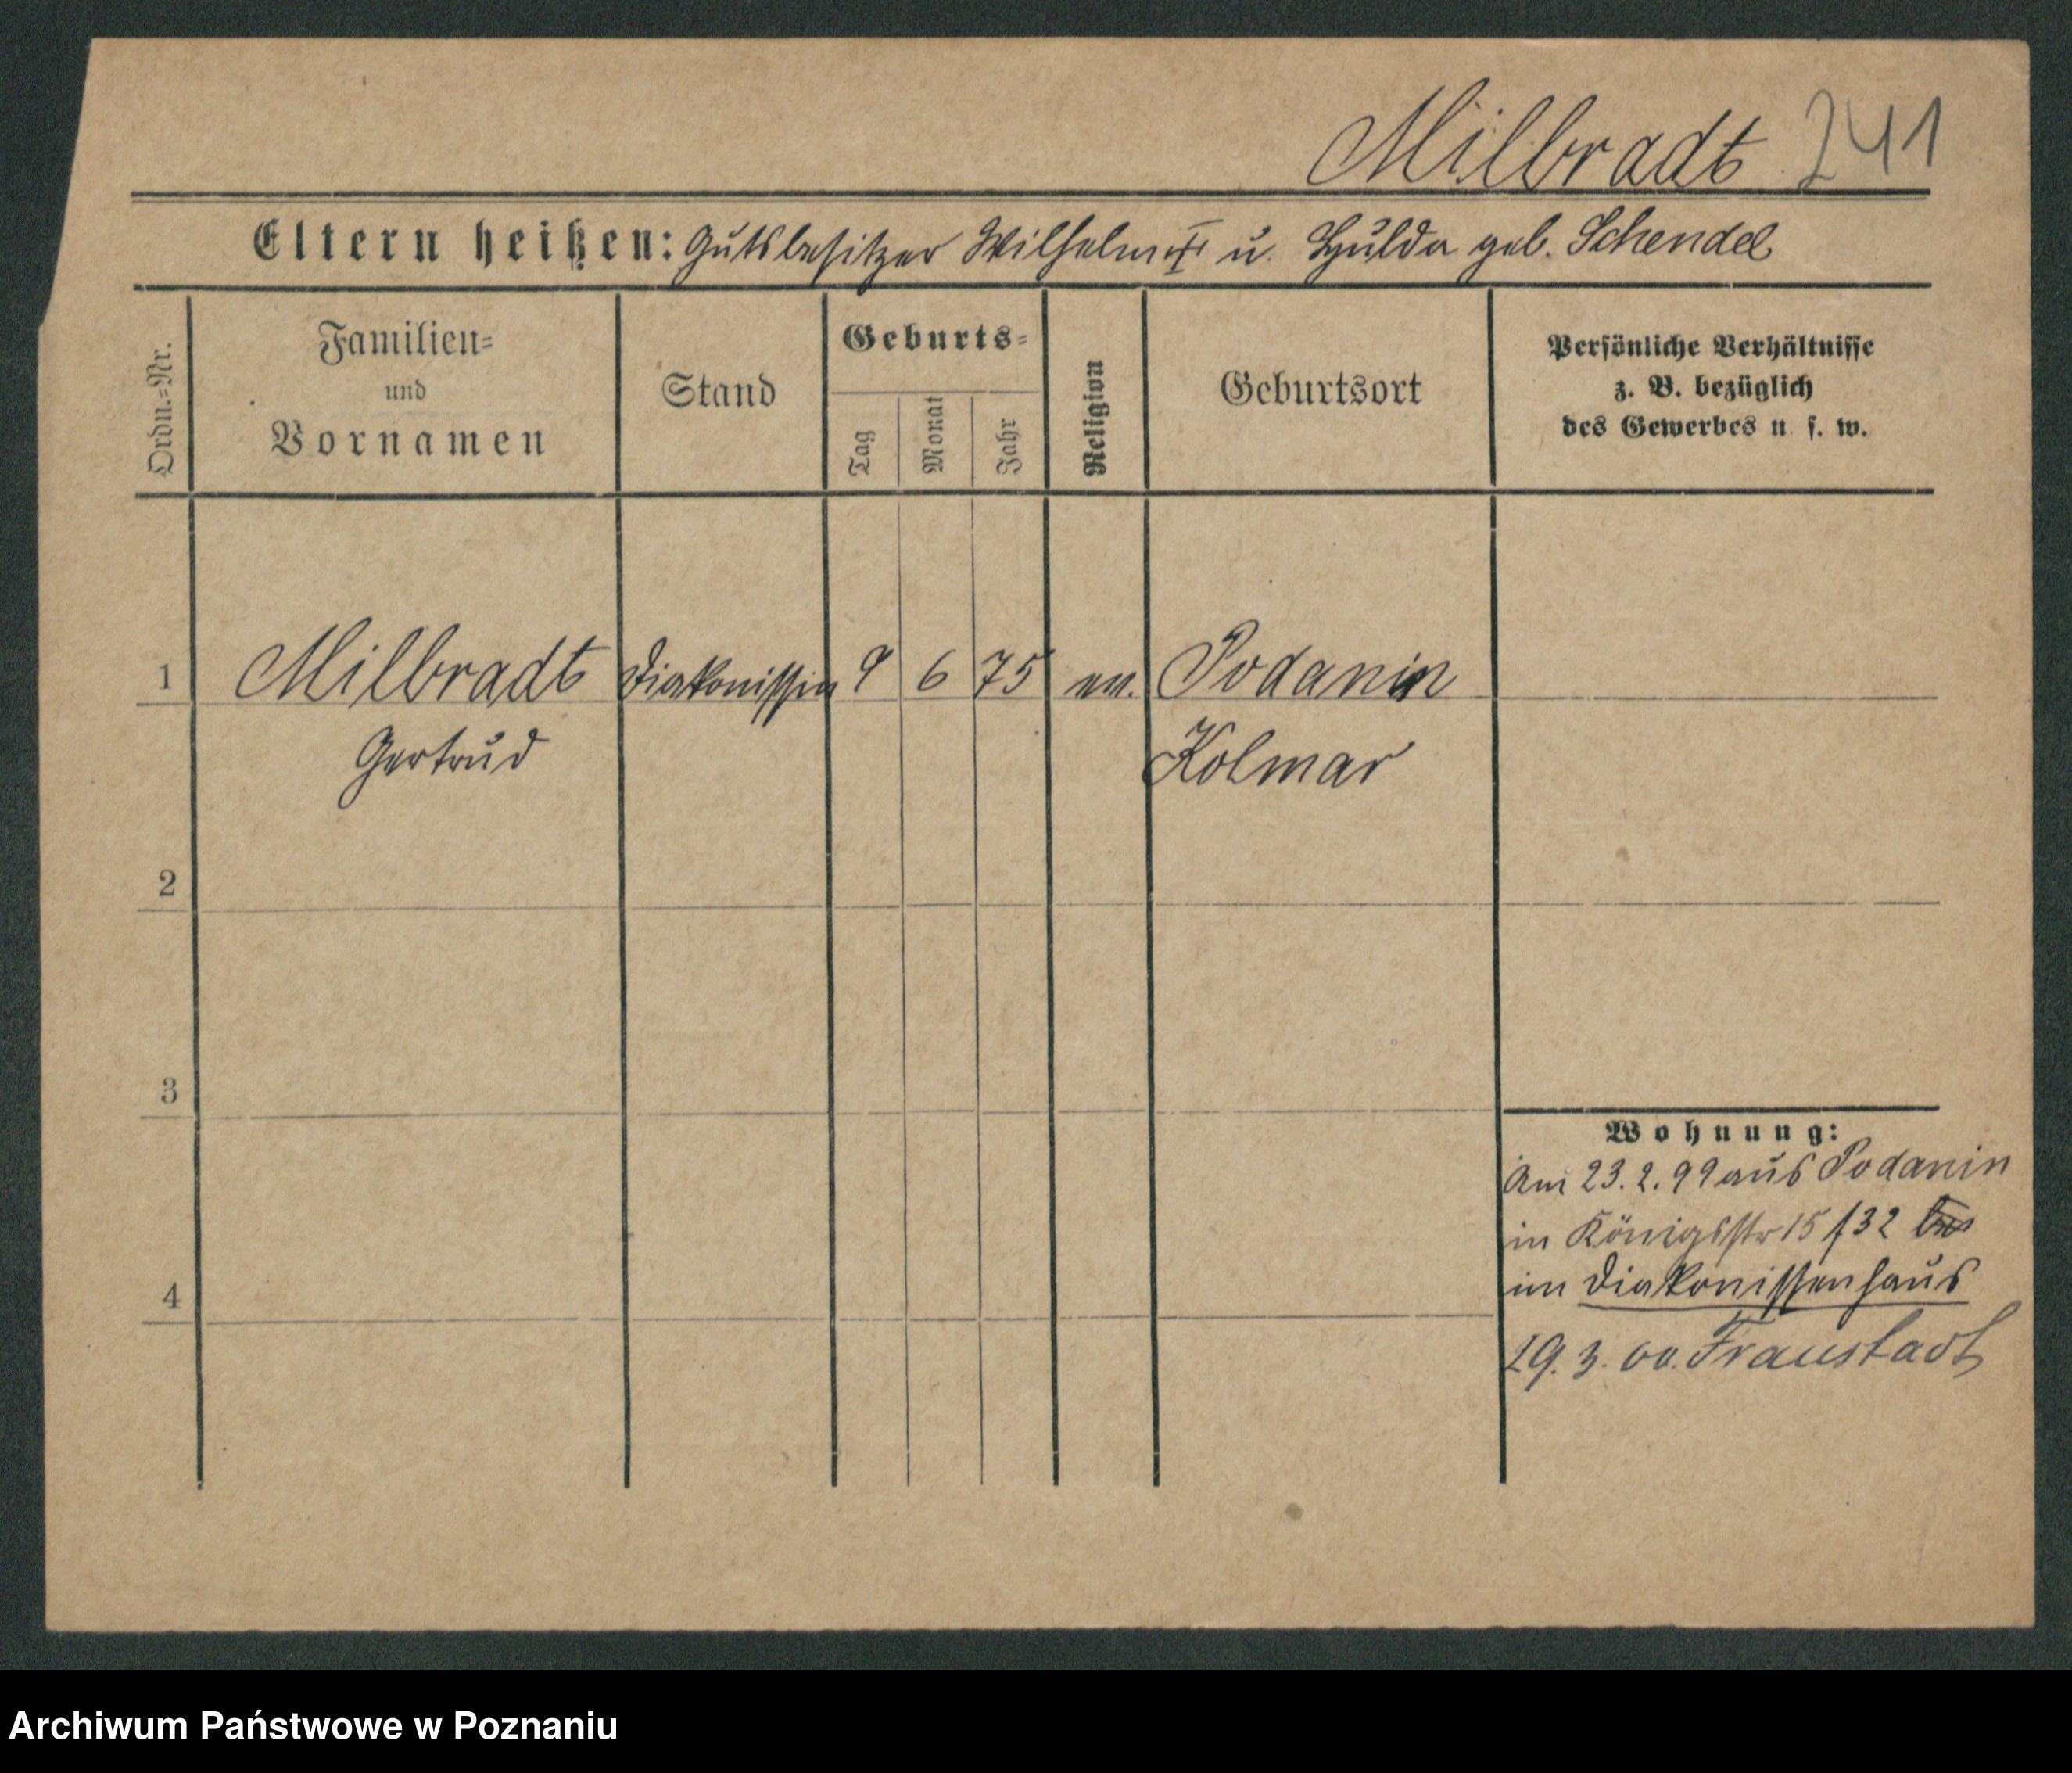 Milbradt 241
Eltern heißen: Gutsbesitzer Wilhelm u. Hulda geb. Schendel
Ordn.=Nr.
Familien=
und
Vornamen
Stand
Geburts=
Tag
Monat
Jahr
Religion
Geburtsort
Persönliche Verhältnisse
z. B. bezüglich
des Gewerbes u. s. w.
1 Milbradt Diakonissin 9 6 75 ev. Podanin
Gertrud Kolmar
2
3
Wohnung:
Am 23.2.99 aus Podanin
in Königsstr 15 f 32
im Diakonissenhaus
4
19. 3. 00. Fraustadt
Archiwum Państwowe w Poznaniu